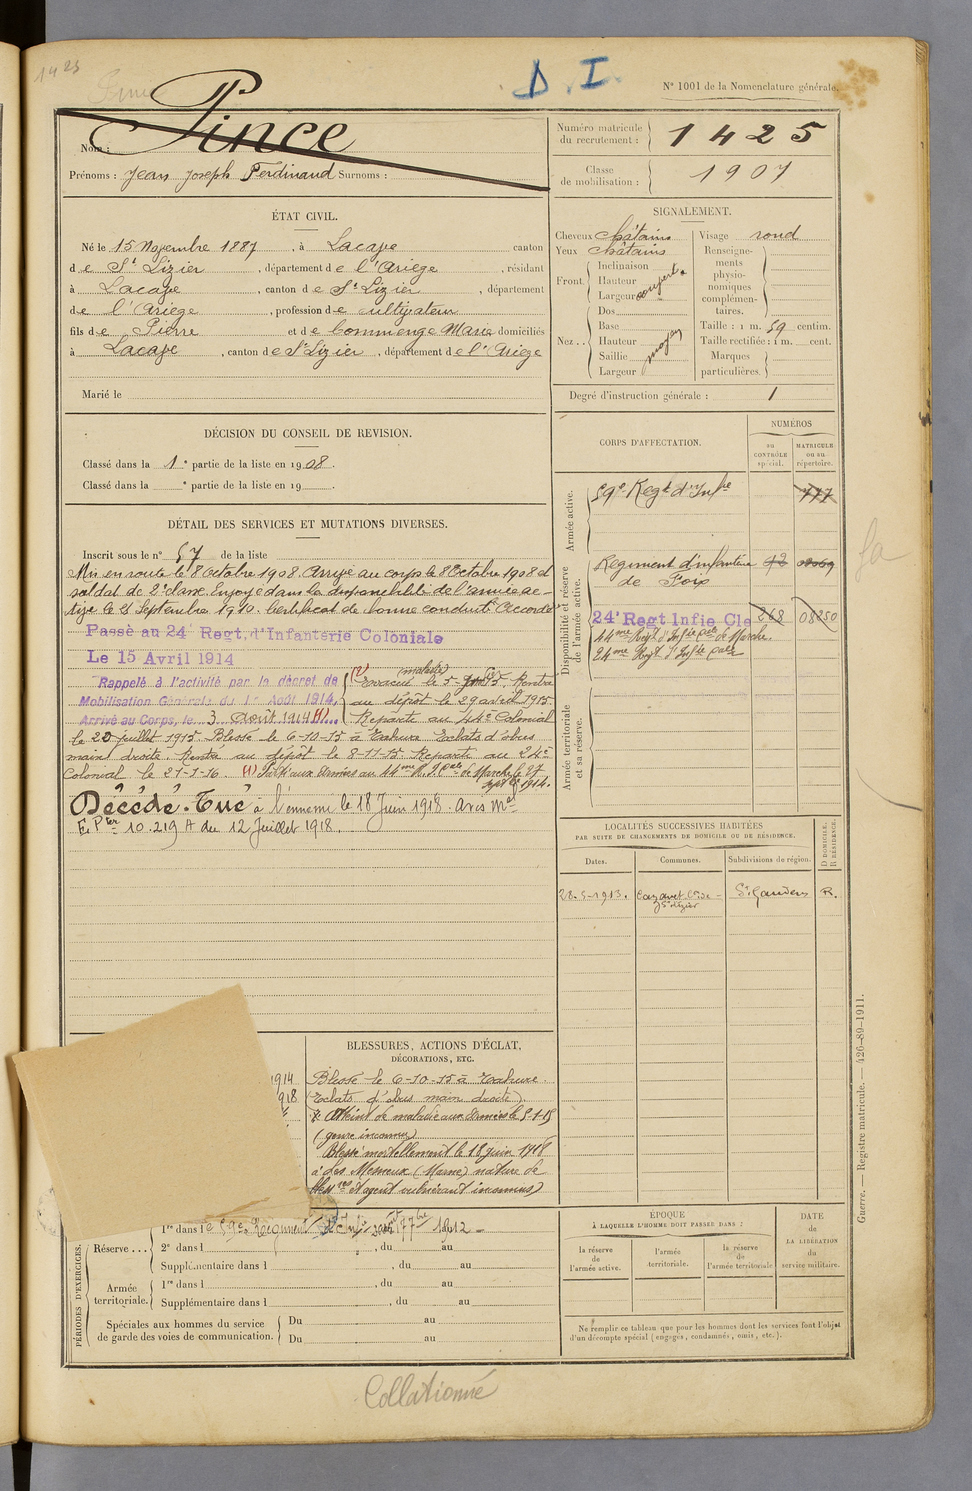 1425
D. I.
N° 1001 de la Nomenclature générale.
Nom : Pince
Prénoms : Jean Joseph Ferdinand Surnoms :
Numéro matricule du recrutement : 1425
Classe de mobilisation : 1907
ÉTAT CIVIL.
Né le 15 Novembre 1887, à Lacave canton
de St Lizier, département de l'Ariège, résidant
à Lacave, canton de St Lizier, département
de l'Ariège, profession de cultivateur
fils de Pierre et de Commenge Marie domiciliés
à Lacave, canton de St Lizier, département de l'Ariège
Marié le
SIGNALEMENT.
Cheveux châtains
Yeux châtains
Front. Inclinaison
Hauteur
Largeur
Nez.. Dos
Base
Hauteur
Saillie
Largeur
moyen
Visage rond
Renseignements physionomiques complémentaires.
Taille : 1 m. 59 centim.
Taille rectifiée : 1 m. cent.
Marques particulières.
Degré d'instruction générale : 1
DÉCISION DU CONSEIL DE REVISION.
Classé dans la 1e partie de la liste en 1908.
Classé dans la e partie de la liste en 19
DÉTAIL DES SERVICES ET MUTATIONS DIVERSES.
Inscrit sous le n° 57 de la liste
Mis en route le 8 Octobre 1908. Arrivé au corps le 8 Octobre 1908 et
soldat de 2e classe. Envoyé dans la disponibilité de l'armée ac-
tive le 25 Septembre 1910. Certificat de bonne conduite Accordé
Passé au 24e Regt. d'Infanterie Coloniale
Le 15 Avril 1914
Rappelé à l'activité par le décret de
Mobilisation Générale du 1er Août 1914.
Arrivé au Corps, le 3 Août 1914 (1)
(2) Evacué (malade) le 5- 15. Rentré
au dépôt le 29 avril 1915.
Reparti au 44e Colonial
le 20 juillet 1915. Blessé le 6-10-15 à Tahure Eclats d'obus
main droite. Rentré au dépôt le 8-11-15. Reparti au 24e
Colonial le 21-1-16. (1) Parti aux Armées au 44me R.I.Cale de Marche le 27
Sept bre 1914.
Décédé. Tué à l'ennemi le 18 Juin 1918. Avis Mel
E. Pter 10.219 A du 12 Juillet 1918.
CORPS D'AFFECTATION.
NUMÉROS
au CONTRÔLE spécial.
MATRICULE ou au répertoire.
Armée active.
59e Regt d'Infrie
777
Disponibilité et réserve de l'armée active.
Régiment d'infanterie
de Foix
24e Regt Infie Cle 268 08250
44me Regt d'Infie Cale de Marche.
24me Regt d'Infie Cale
Armée territoriale et sa réserve.
LOCALITÉS SUCCESSIVES HABITÉES
PAR SUITE DE CHANGEMENTS DE DOMICILE OU DE RÉSIDENCE.
Dates. Communes. Subdivisions de région. D DOMICILE. R RÉSIDENCE.
28-5-1913. St Gaudens R.
1914
1918
BLESSURES, ACTIONS D'ÉCLAT,
DÉCORATIONS, ETC.
Blessé le 6-10-15 à Tahure.
(Eclats d'obus main droite)
Atteint de maladie aux Armées le 5-1-15
(genre inconnu)
Blessé mortellement le 18 juin 1918
à Les Mesneux (Marne) nature de
blessres et agent vulnérant inconnus)
PÉRIODES D'EXERCICES.
Réserve... 1re dans le 59e Régiment d'Infie 1912
2e dans l , du au
Supplémentaire dans l , du au
Armée territoriale. 1re dans l , du au
Supplémentaire dans l , du au
Spéciales aux hommes du service de garde des voies de communication. Du au
Du au
ÉPOQUE
À LAQUELLE L'HOMME DOIT PASSER DANS :
la réserve de l'armée active.
l'armée territoriale.
la réserve de l'armée territoriale
DATE de LA LIBÉRATION du service militaire.
Ne remplir ce tableau que pour les hommes dont les services font l'objet
d'un décompte spécial (engagés, condamnés, omis, etc.).
Guerre. — Registre matricule. — 426-89-1911.
Collationné